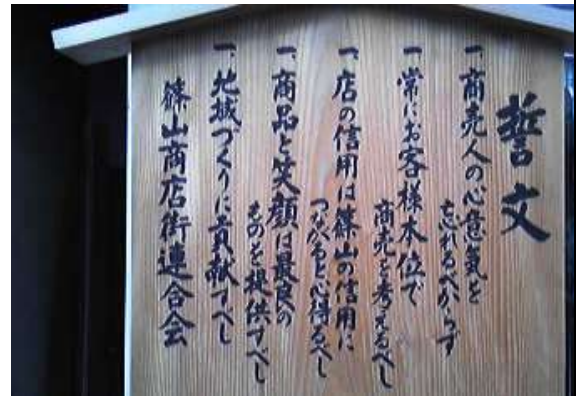 誓文
一、商売人の心意気を
忘れるべからず
一、常にお客様本位で
商売を考えるべし
一、店の信用は篠山の信用に
つながると心得るべし
一、商品と笑顔は最良の
ものを提供すべし
一、地域づくりに貢献すべし
篠山商店街連合会